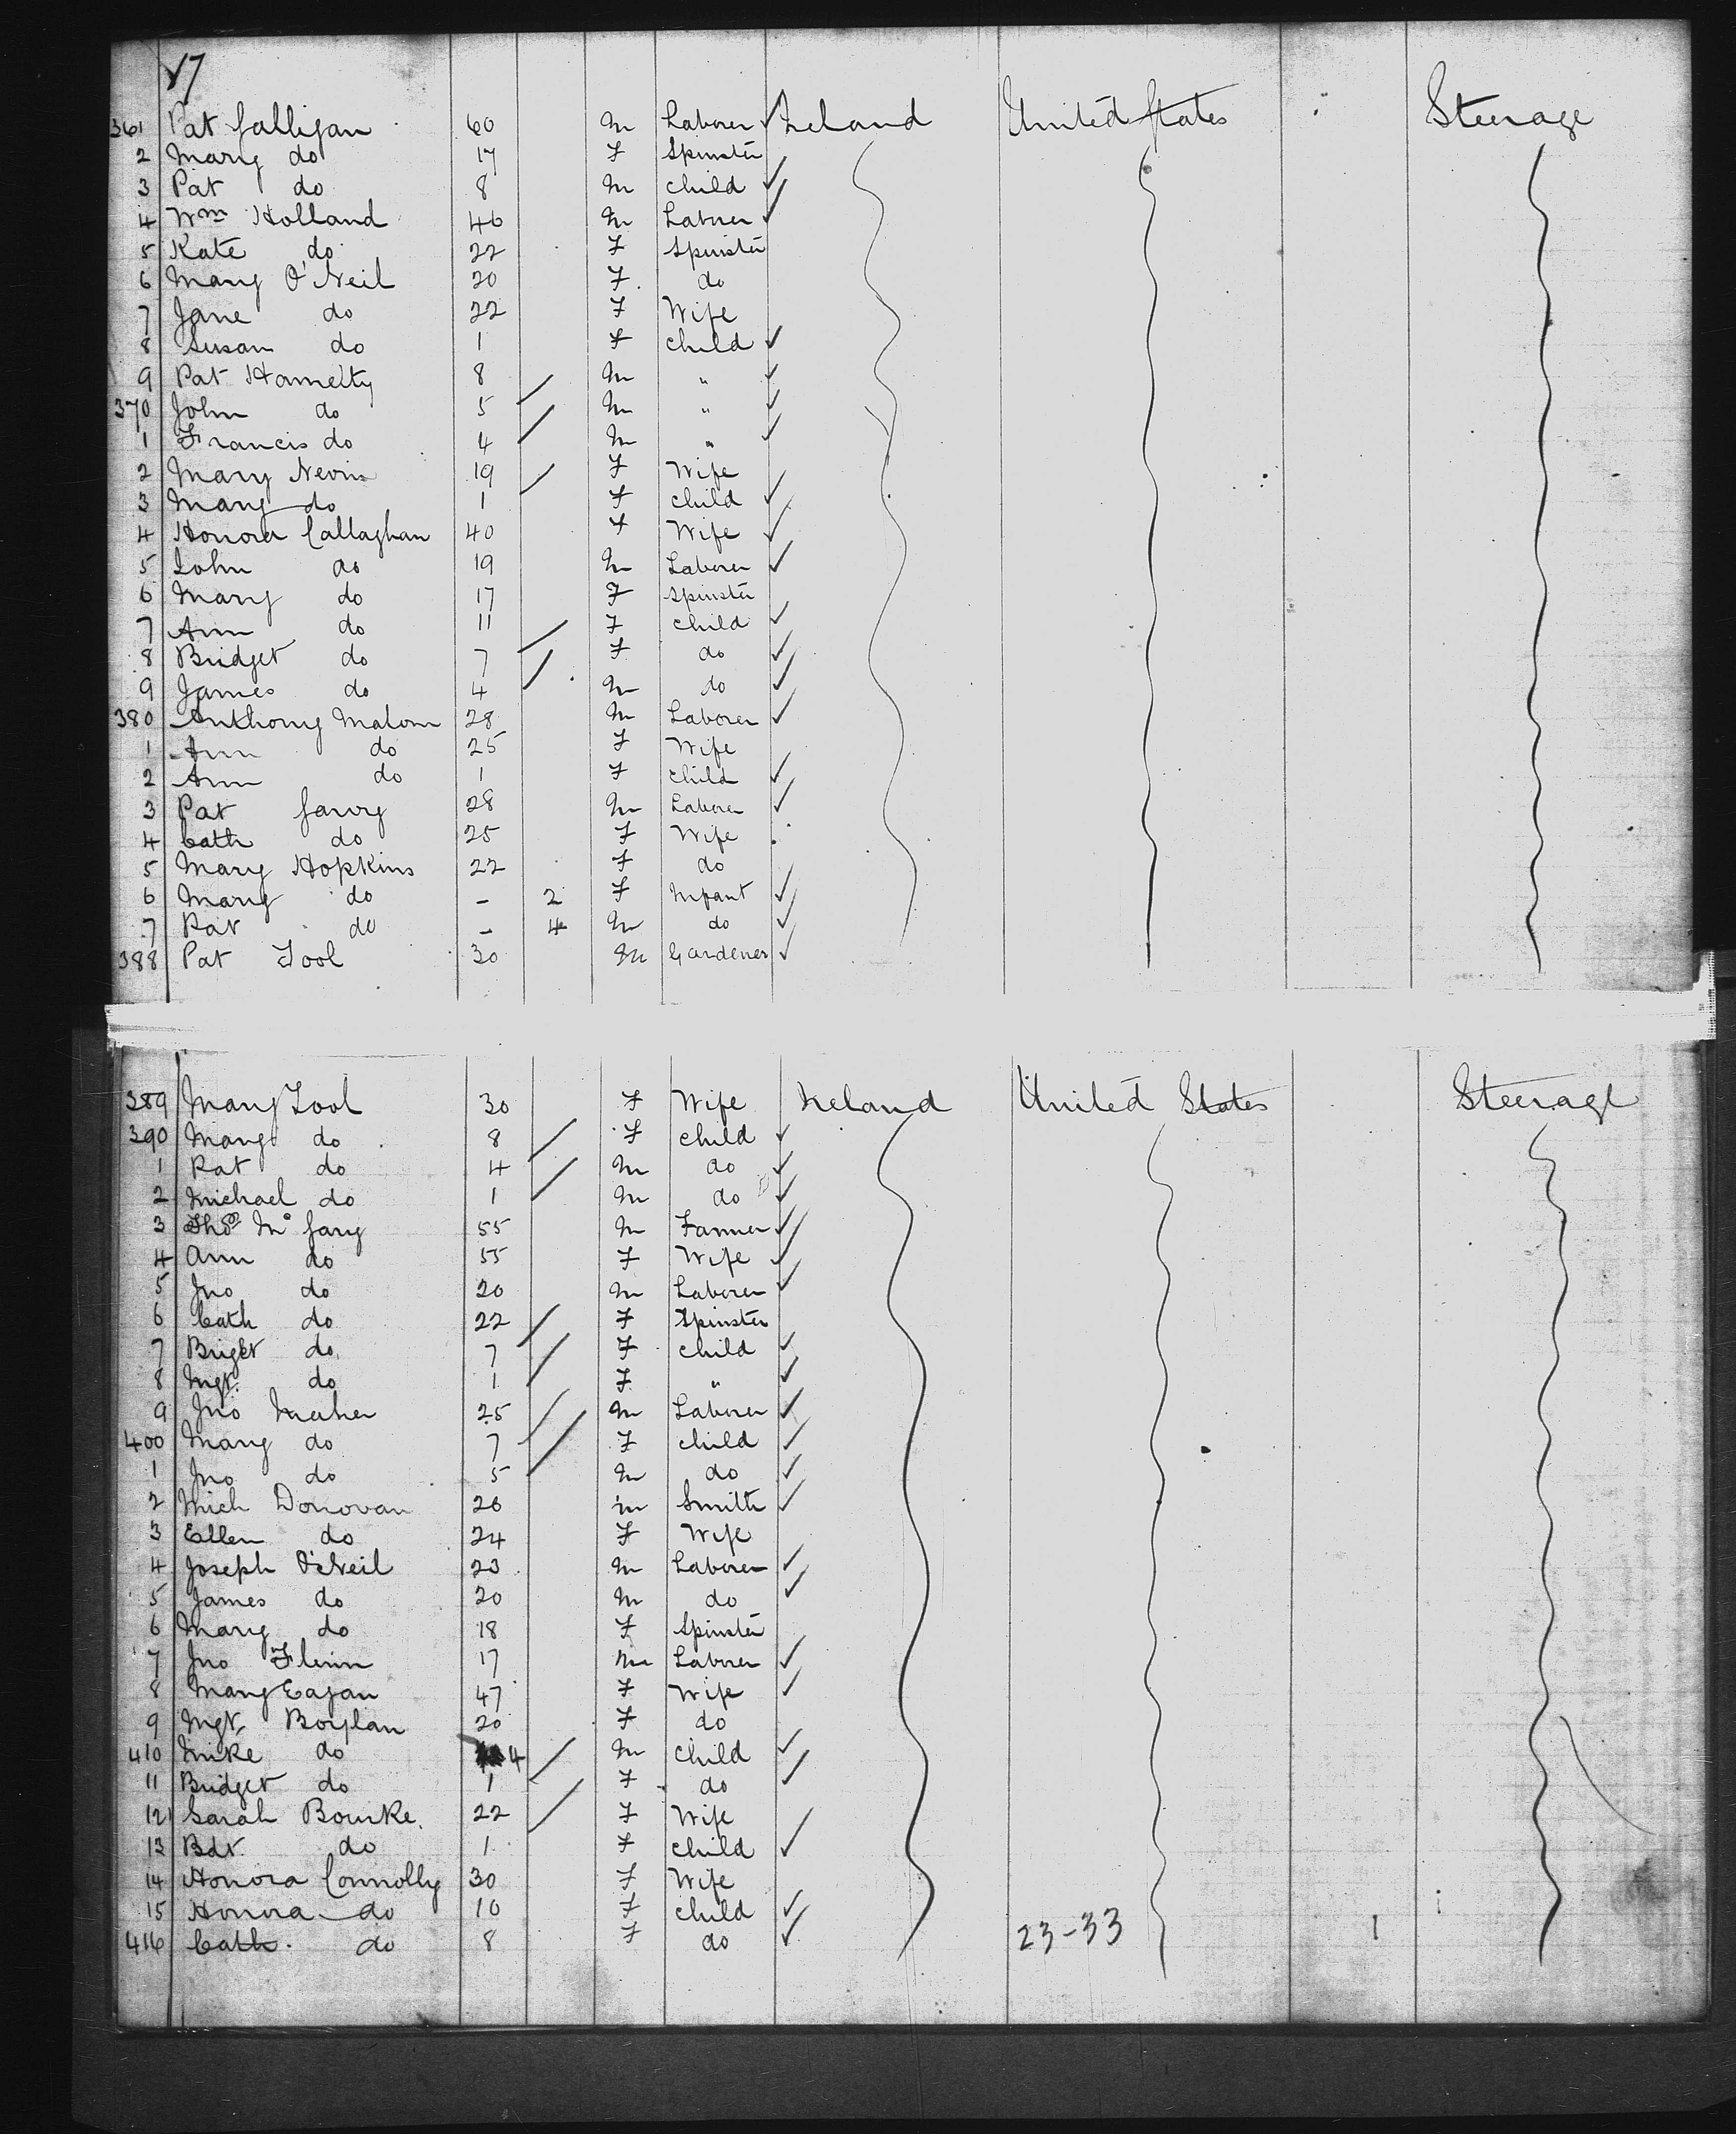 17
361 Pat Galligan 60 M Laborer Ireland United States Steerage
2 Mary do 17 F Spinster
3 Pat do 8 M Child
4 Wm Holland 40 M Laborer
5 Kate do 22 F Spinster
6 Mary O'Neil 20 F do
7 Jane do 22 F Wife
8 Susan do 1 F Child
9 Pat 8 M "
370 John do 5 M "
1 Francis do 4 M "
2 Mary Nevin 19 F Wife
3 Mary do 1 F Child
4 Honora Callaghan 40 F Wife
5 John do 19 M Laborer
6 Mary do 17 F Spinster
7 Ann do 11 F Child
8 Bridget do 7 F do
9 James do 4 M do
380 Anthony Malom 28 M Laborer
1 Ann do 25 F Wife
2 Ann do 1 F Child
3 Pat Garvy 28 M Laborer
4 Cath do 25 F Wife
5 Mary Hopkins 22 F do
6 Mary do - 2 F Infant
7 Pat do - 4 M do
388 Pat Tool 30 M Gardener
389 Mary Tool 30 F Wife Ireland United States Steerage
390 Mary do 8 F Child
1 Pat do 4 M do
2 Michael do 1 M do
3 Thos Mc Gary 55 M Farmer
4 Ann do 55 F Wife
5 Jno do 20 M Laborer
6 Cath do 22 F Spinster
7 Briget do 7 F Child
8 Mgt. do 1 F "
9 Jno Maher 25 M Laborer
400 Mary do 7 F Child
1 Jno do 5 M do
2 Mich Donovan 26 M Smith
3 Ellen do 24 F Wife
4 Joseph O'Neil 23 M Laborer
5 James do 20 M do
6 Mary do 18 F Spinster
7 Jno Flinn 17 M Laborer
8 Mary Eagan 47 F Wife
9 Mgt. Boylan 20 F do
410 Mike do 4 M Child
11 Bridget do 1 F do
12 Sarah Bourke. 22 F Wife
13 Bdt. do 1 F Child
14 Honora Connolly 30 F Wife
15 Honora do 10 F Child
416 Cath. do 8 F do 23-33 1